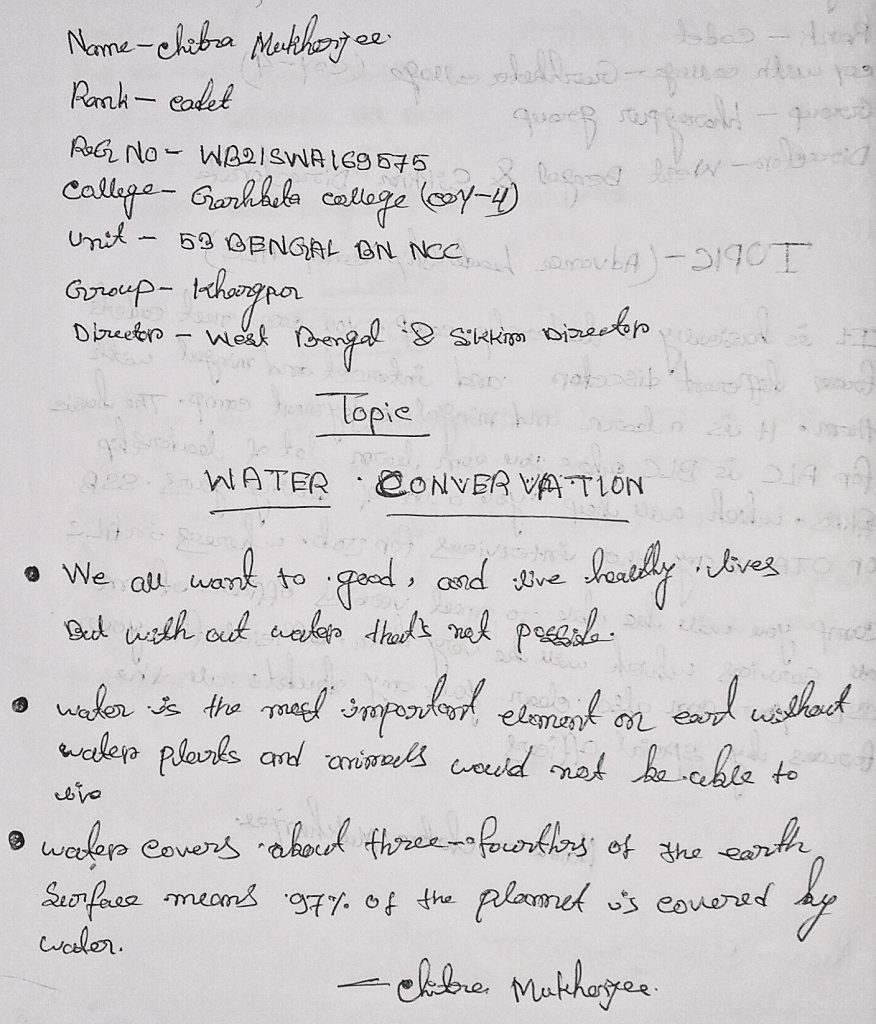 Name - Chitra Mukherjee.
Rank - cadet
REG No - WB21SWA169575
College - Garhbeta college (coy-4)
Unit - 53 BENGAL BN NCC
Group - Kharagpor
Director - West Bengal & Sikkim Director
Topic
WATER CONVERVATION
• We all want to good, and live healthy lives
But with out water that's not possible.
• water is the most important element on eart without
water plants and animals would not be able to
live
• water covers about three-fourthrs of the earth
Surface means 97% of the plannet is covered by
water.
— Chitra Mukherjee.